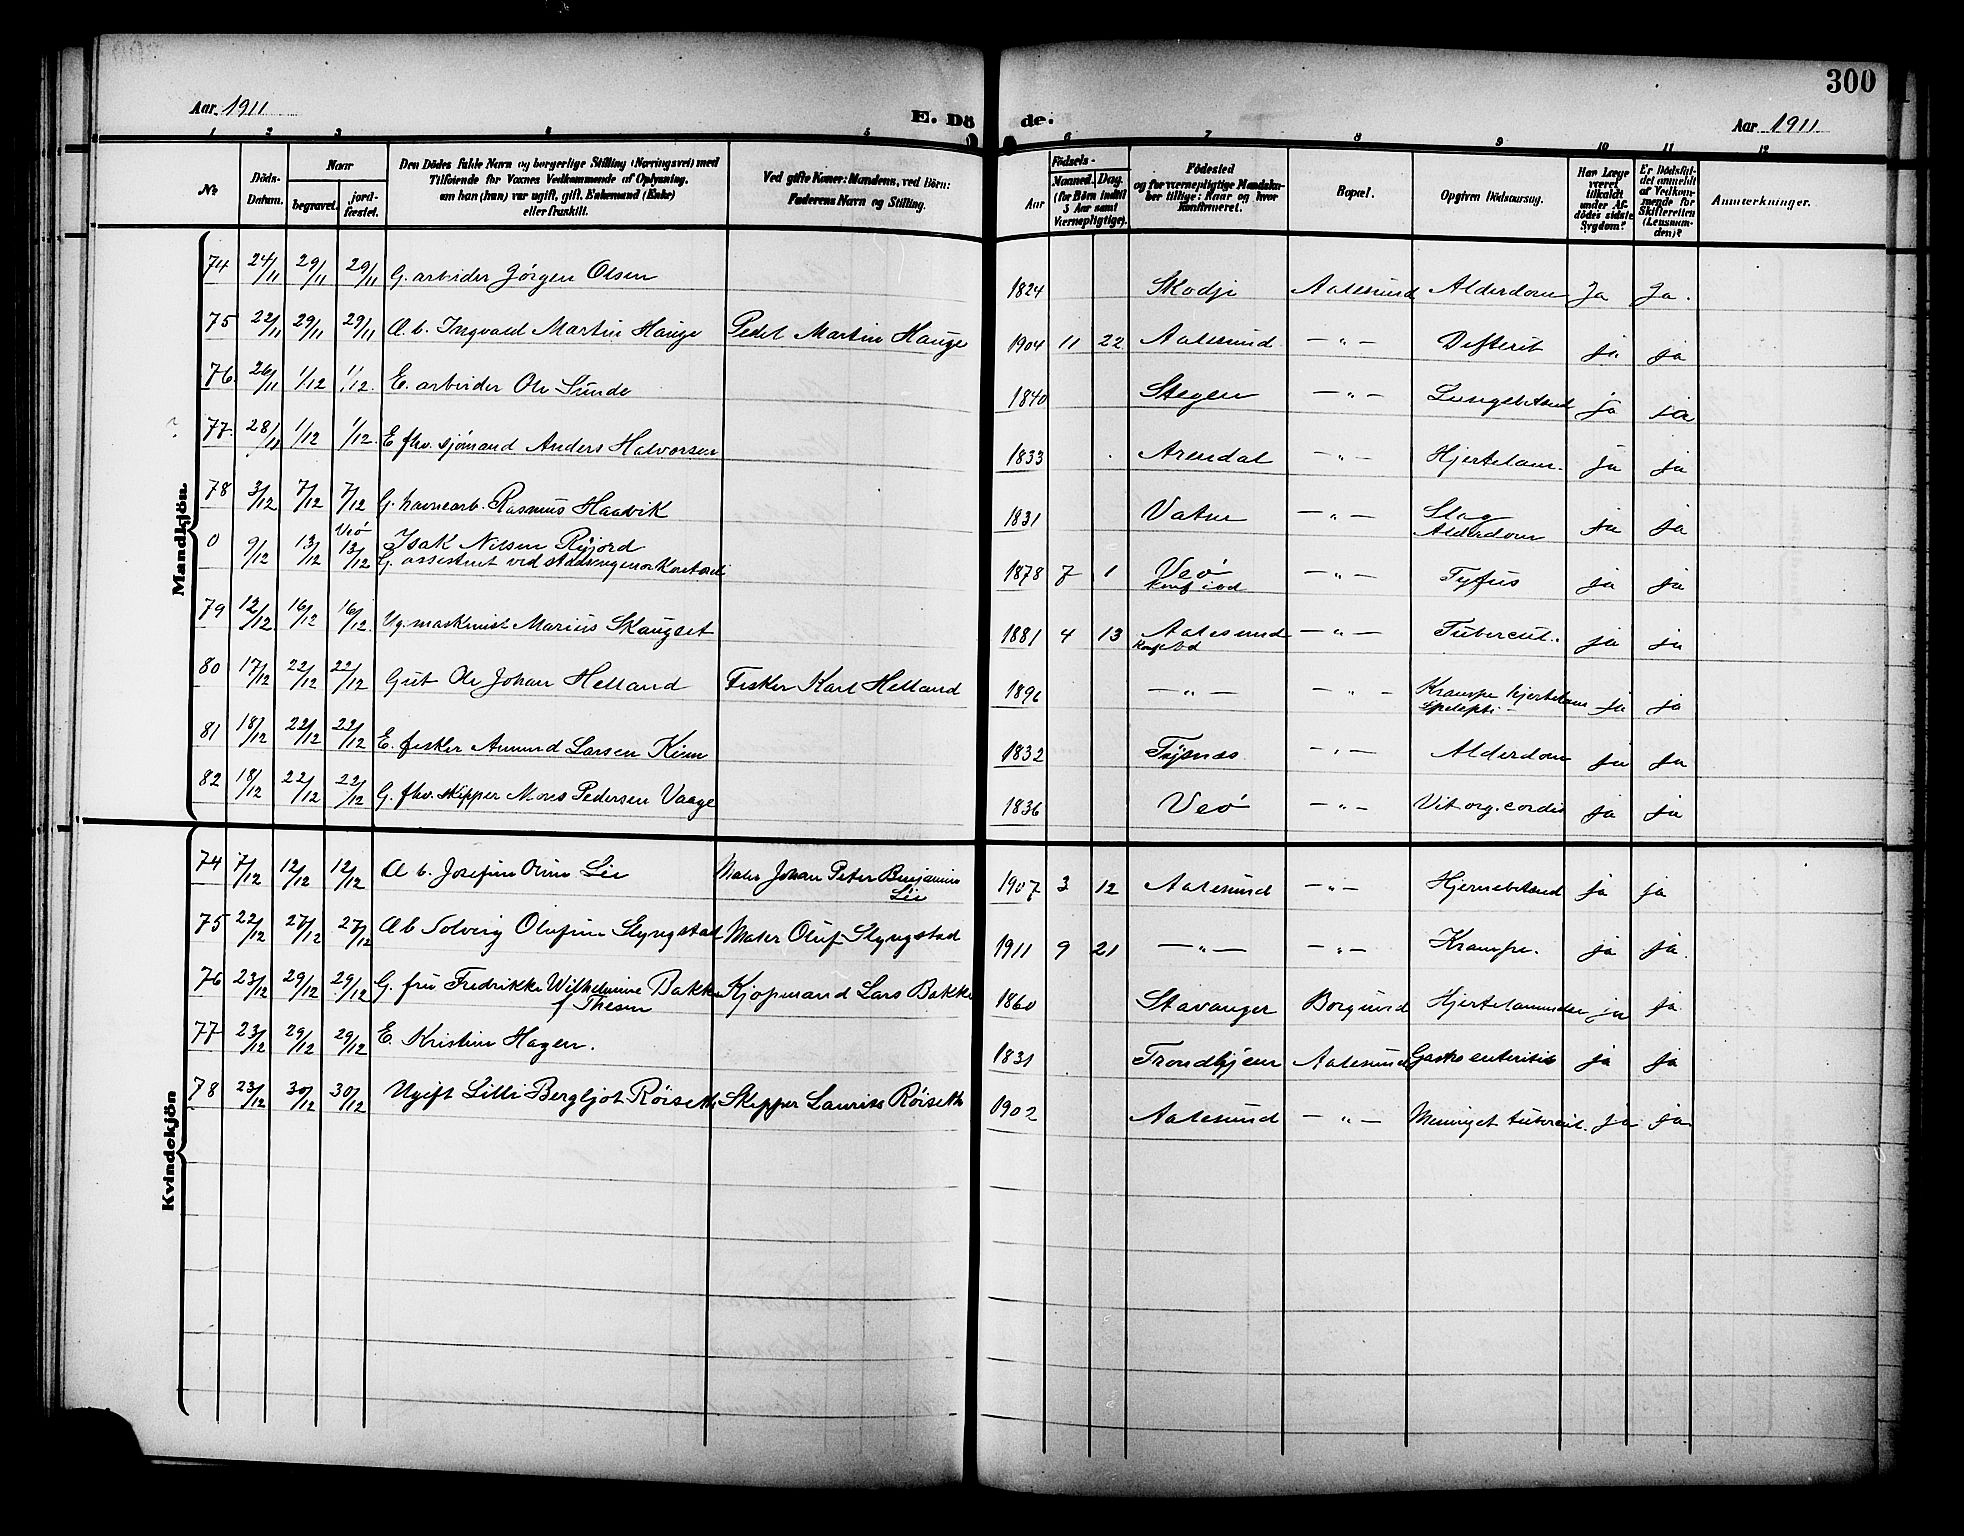 300
Aar 1911
E. Dö de.
Aar 1911
1 2 3 4 5 6 7 8 9 10 11 12
No
Döds-Datum.
Naar
begravet.
jord-fæstet.
Den Dödes fulde Navn og borgerlige Stilling (Næringsvei) med
Tilföiende for Voxnes Vedkommende af Oplysning,
om han (hun) var ugift, gift, Enkemand (Enke)
eller fraskilt.
Ved gifte Koner: Mandens, ved Börn:
Faderens Navn og Stilling.
Födsels-
Aar
Maaned. Dag.
(for Börn indtil
3 Aar samt
Værnepligtige).
Födested
og for værnepligtige Mandska-
ber tillige: Naar og hvor
konfirmeret.
Bopæl.
Opgiven Dödsaarsag.
Har Læge
været
tilkaldt
under Af-
dödes sidste
Sygdom?
Er Dödsfal-
det anmeldt
af Vedkom-
mende for
Skifteretten
(Lensman-
den)?
Anmærkninger.
Mandkjön
74 24/11 29/11 29/11 G. arbeider Jörgen Olsen 1824 Skodje Aalesund Alderdom Ja Ja.
75 22/11 29/11 29/11 A. b. Ingvald Martin Hauge Peder Martin Hauge 1904 11 22 Aalesund — " — Defterit ja ja
76. 26/11 1/12 1/12. E. arbeider Ole Sunde 1840 Stegen — " — Lungebetænd ja ja
77. 28/11 1/12 1/12. E fhv. sjömand Anders Halvorsen 1833 Arendal — " — Hjertelam. ja ja
78 3/12 7/12 7/12 G. havnearb. Rasmus Haavik 1831 Vatne — " — Slag
Alderdom ja ja
0 9/12 13/12 Veö 13/12 Isak Nilsen Röjord
G. assistent ved stadsingeniörkontoret 1878 7 1 Veö — " — Tyfus ja ja
79 12/12 16/12 16/12. Ug. maskinist Marius Skaugset 1881 4 13 Aalesund — " — Tubercul. ja ja
80 17/12 22/12 22/12 Gut Ole Johan Helland Fisker Karl Helland 1896 — " — — " — Krampe hjertelam
Epelepti — ja ja
81 18/12 22/12 22/12 E. fisker Amund Larsen Keim 1832 Tysnæs. — " — Alderdom ja ja
82 18/12 22/12 22/12 G. fhv. skipper Mons Pedersen Vaage 1836 Veö — " — Vit. org. cordis ja ja
Kvindekjön
74 7/12 12/12 12/12 A b. Josefine Oline Lie Maler Johan Peter Benjamin
Lie 1907 3 12 Aalesund — " — Hjernebetænd ja ja
75 22/12 27/12 27/12 A b Solveig Olufine Slyngstad Maler Oluf Slyngstad 1911 9 21 — " — — " — Krampe. ja ja.
76 23/12 29/12 29/12 G. fru Fredrikke Wilhelmine Bakke
f Thesen Kjöpmand Lars Bakke 1860 Stavanger Borgund Hjertelammelse ja ja.
77 23/12 29/12 29/12 E. Kristine Hagen. 1831 Trondhjem Aalesund Gastro enteritis ja ja
78 23/12 30/12 30/12 Ugift Lilli Bergljot Röiseth Skipper Laurits Röiseth 1902 Aalesund — " — Meninget tubercul. ja ja